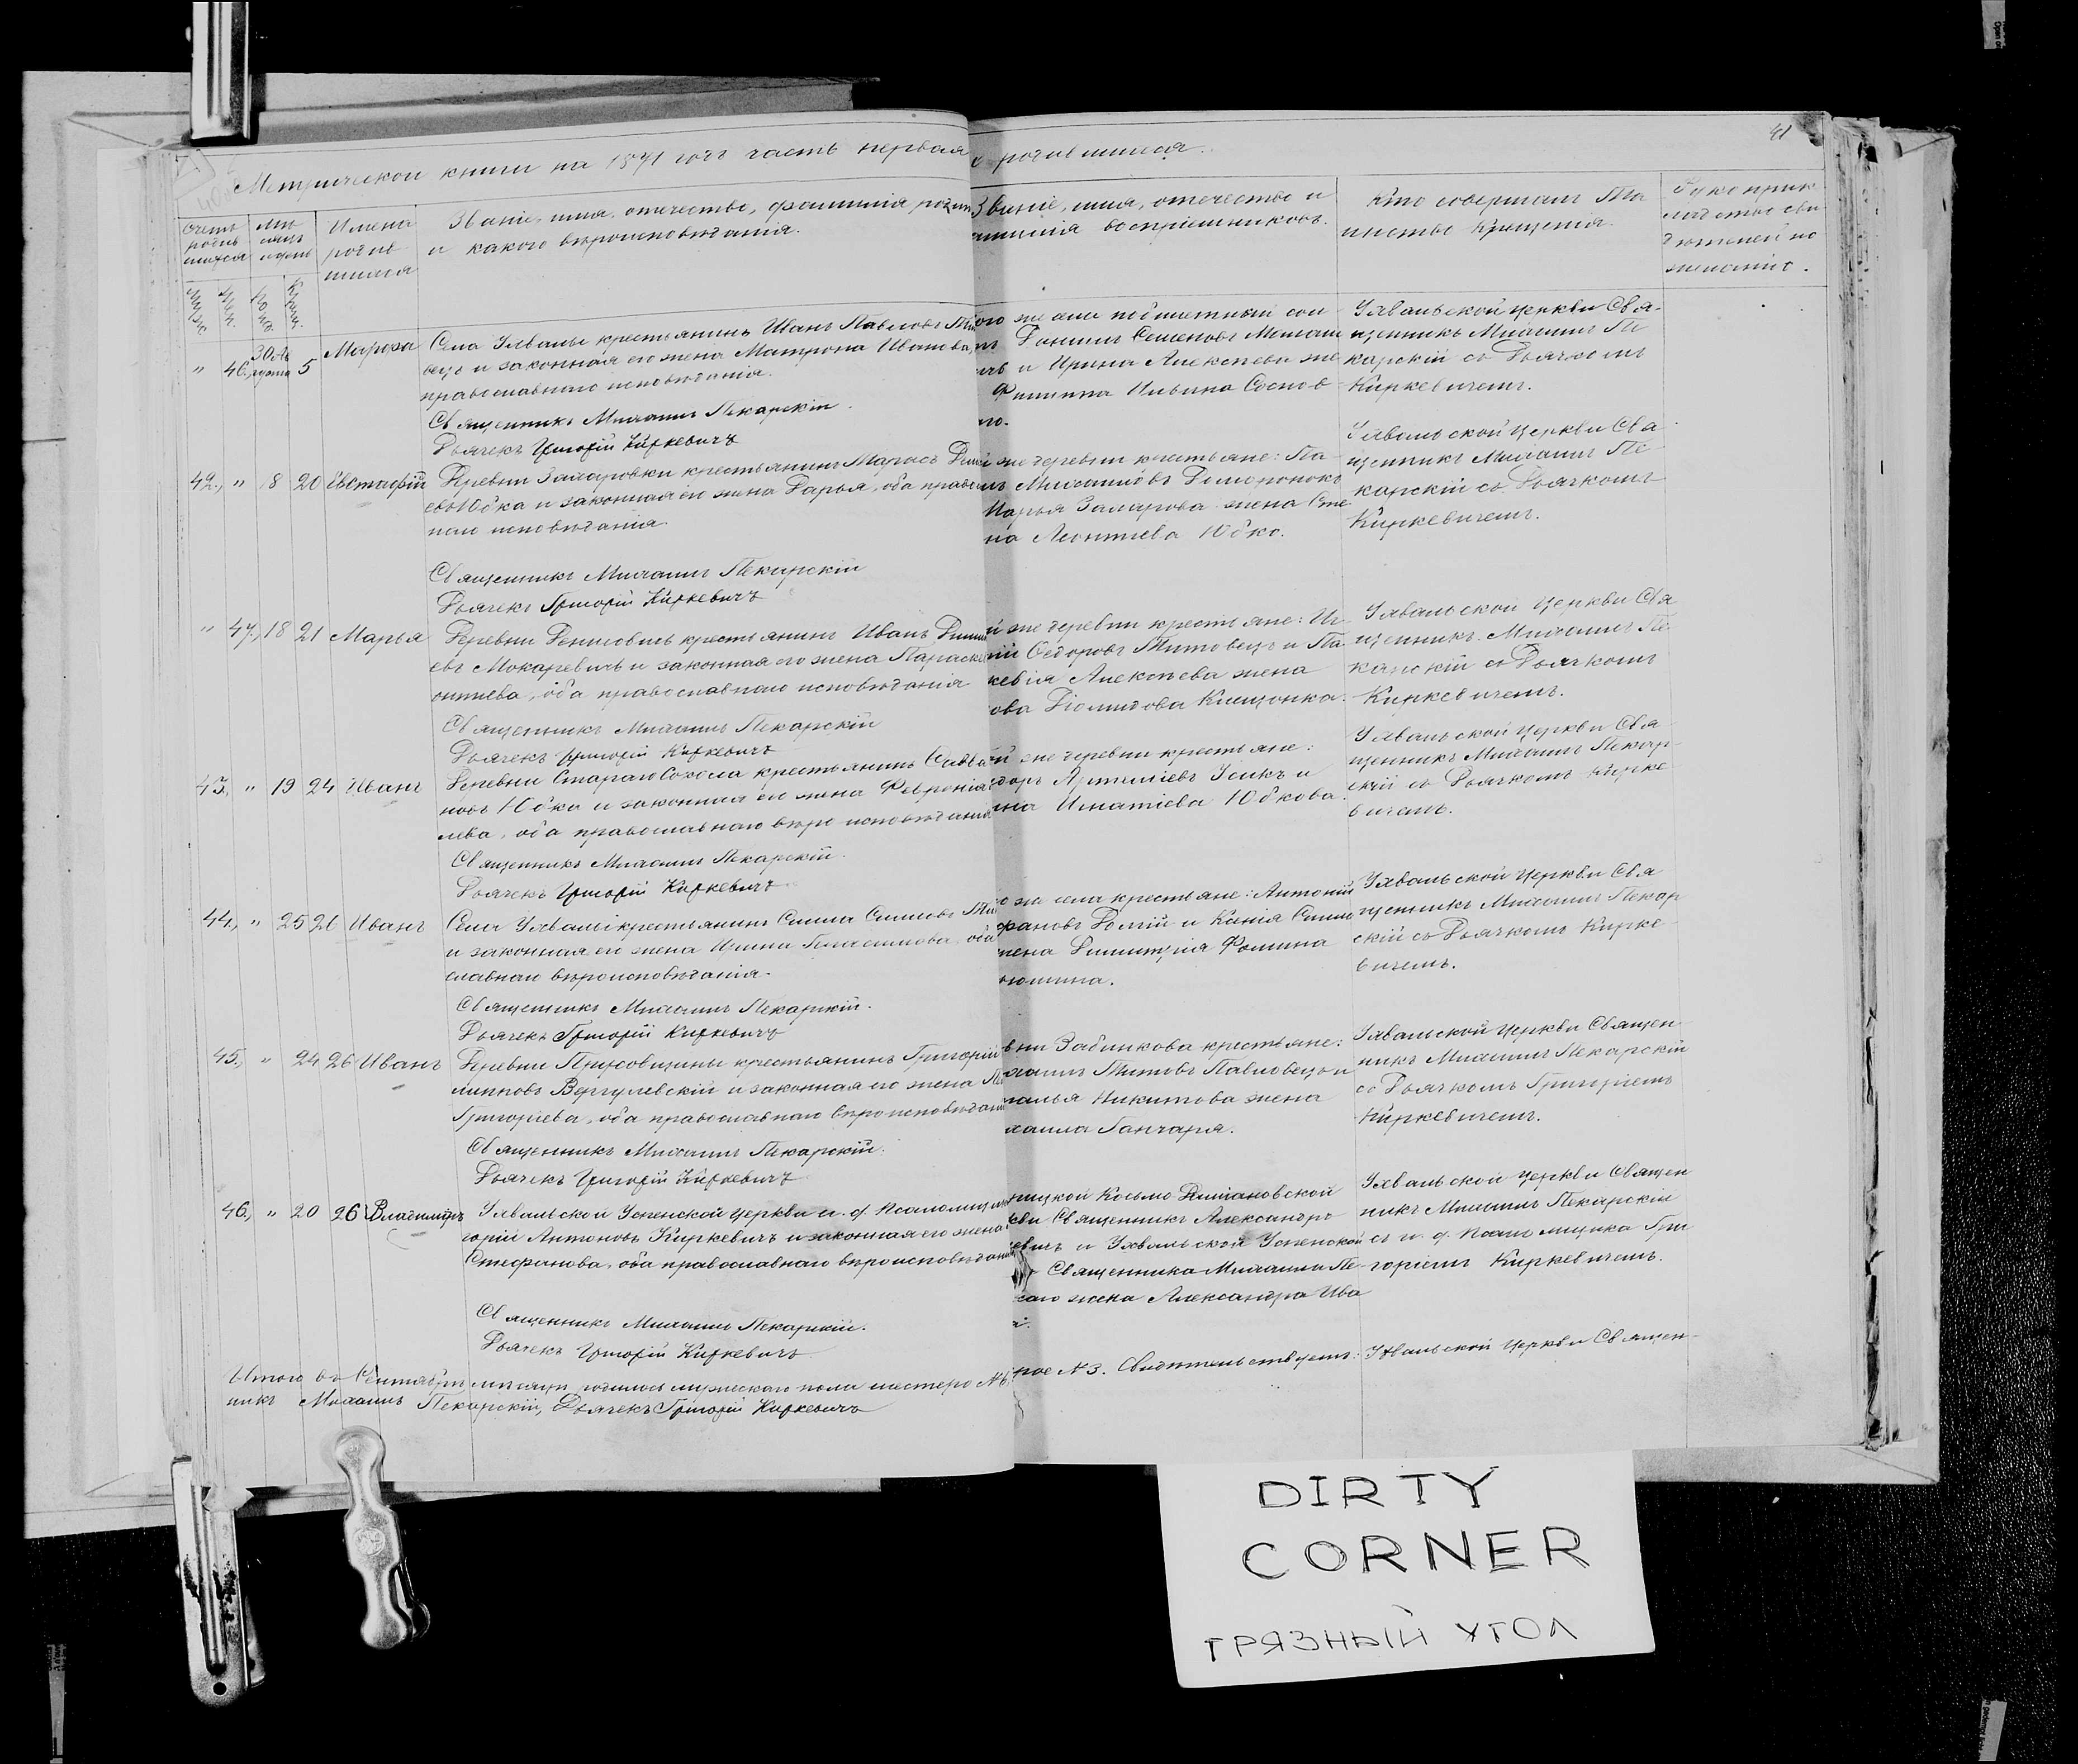 41
Метрической книги на 1871 годъ часть первая о родившихся.
Счетъ родив шихся
Мѣ сяцъ и день
Имена родив шихся
Званіе, имя, отечество, фамилія родит
и какого вѣроисповѣданія.
Званіе, имя, отечество и
амилія воспріемниковъ.
Кто совершалъ Та
инство Крещенія.
Рукоприк
ладство сви
дѣтелей по
желанію.
" 46, 30 Ав густа 5
Села Ухвалы крестьянинъ Иванъ Павловъ
вецъ и законная его жена Матрона Иванова,
православнаго исповѣданія.
Священникъ Михаилъ Пекарскій.
Дьячекъ Григорій Киркевичъ
ого же села
Даніилъ Семеновъ
и Ирина Алексѣева же
Филиппа Ильина Соснов
го.
Ухвальской церкви Свя-
щенникъ Михаилъ Пе
карскій съ Дьячкомъ
Киркевичемъ.
42, " 18 20 Евстафій
Деревни Захаровки крестьянинъ Маркъ
евъ Юдка и законная его жена Дарья, оба правос
наго исповѣданія.
Священникъ Михаилъ Пекарскій
Дьячекъ Григорій Киркевичъ
й же деревни крестьяне: Па
Михаиловъ
Марья Захарова жена Сте
на Леонтіева Юдко.
Ухвальской церкви Свя
щенникъ Михаилъ Пе
карскій съ Дьячкомъ
Киркевичемъ.
" 47, 18 21 Марья
Деревни Денисовичъ крестьянинъ Иванъ
евъ Мокаревичъ и законная его жена Параскев
онтіева, оба православнаго исповѣданія
Священникъ Михаилъ Пекарскій
Дьячекъ Григорій Киркевичъ
й же деревни крестьяне: Иг
тій Ѳедоровъ Титовецъ и Па
кевія Алексѣева жена
ова Діомидова
Ухвальской церкви Свя
щенникъ Михаилъ Пе-
карскій съ Дьячкомъ
Киркевичемъ.
43, " 19 24 Иванъ
Деревни Стараго Сокола крестьянинъ Савва
новъ Юдка и законная его жена Февронія
лева, оба православнаго вѣроисповѣданія
Священникъ Михаилъ Пекарскій.
Дьячекъ Григорій Киркевичъ
й же деревни крестьяне:
едоръ Усикъ и
нія Игнатіева Юдкова
Ухвальской церкви Свя
щенникъ Михаилъ Пекар-
скій съ Дьячкомъ Кирке
вичемъ.
44, " 25 26 Иванъ
Села Ухвалы крестьянинъ Симма Симмовъ
и законная его жена Ирина Герасимова, оба
славнаго вѣроисповѣданія.
Священникъ Михаилъ Пекарскій.
Дьячекъ Григорій Киркевичъ
о же села крестьяне: Антоній
фановъ и Ксенія
жена Димитрія Фомина
Ухвальской церкви Свя
щенникъ Михаилъ Пекар
скій съ Дьячкомъ Кирке-
вичемъ.
45, " 24 26 Иванъ
Деревни Прусовщины крестьянинъ Григорій
липповъ Вергулевскій и законная его жена
Григорьева, оба православнаго вѣроисповѣдані
Священникъ Михаилъ Пекарскій.
Дьячекъ Григорій Киркевичъ
вни Забинкова крестьяне:
хаилъ Титовъ Павловецъ и
талья Никитова жена
хаила Ганчаря.
Ухвальской церкви Священ
никъ Михаилъ Пекарскій
съ Дьячкомъ Григоріемъ
Киркевичемъ.
46, " 20 26 Владиміръ
Ухвальской Успенской церкви и. д. псаломщик
горій Антоновъ Киркевичъ и законная его жена
Стефанова, оба православнаго вѣроисповѣдані
Священникъ Михаилъ Пекарскій.
Дьячекъ Григорій Киркевичъ
Косьмо-Даміановской
кви Священникъ Александръ
евичъ и Ухвальской Успенской
Священника Михаила Пе-
скаго жена Александра Ива
а.
Ухвальской церкви Священ
никъ Михаилъ Пекарскій
съ и. д. псаломщика Гри
горіемъ Киркевичемъ.
Итого въ Сентябрѣ мѣсяцѣ родилось мужескаго пола шестеро № 6.
рое № 3. Свидѣтельствуемъ: Ухвальской церкви Священ-
никъ Михаилъ Пекарскій, Дьячекъ Григорій Киркевичъ
DIRTY
CORNER
ГРЯЗНЫЙ УГОЛ